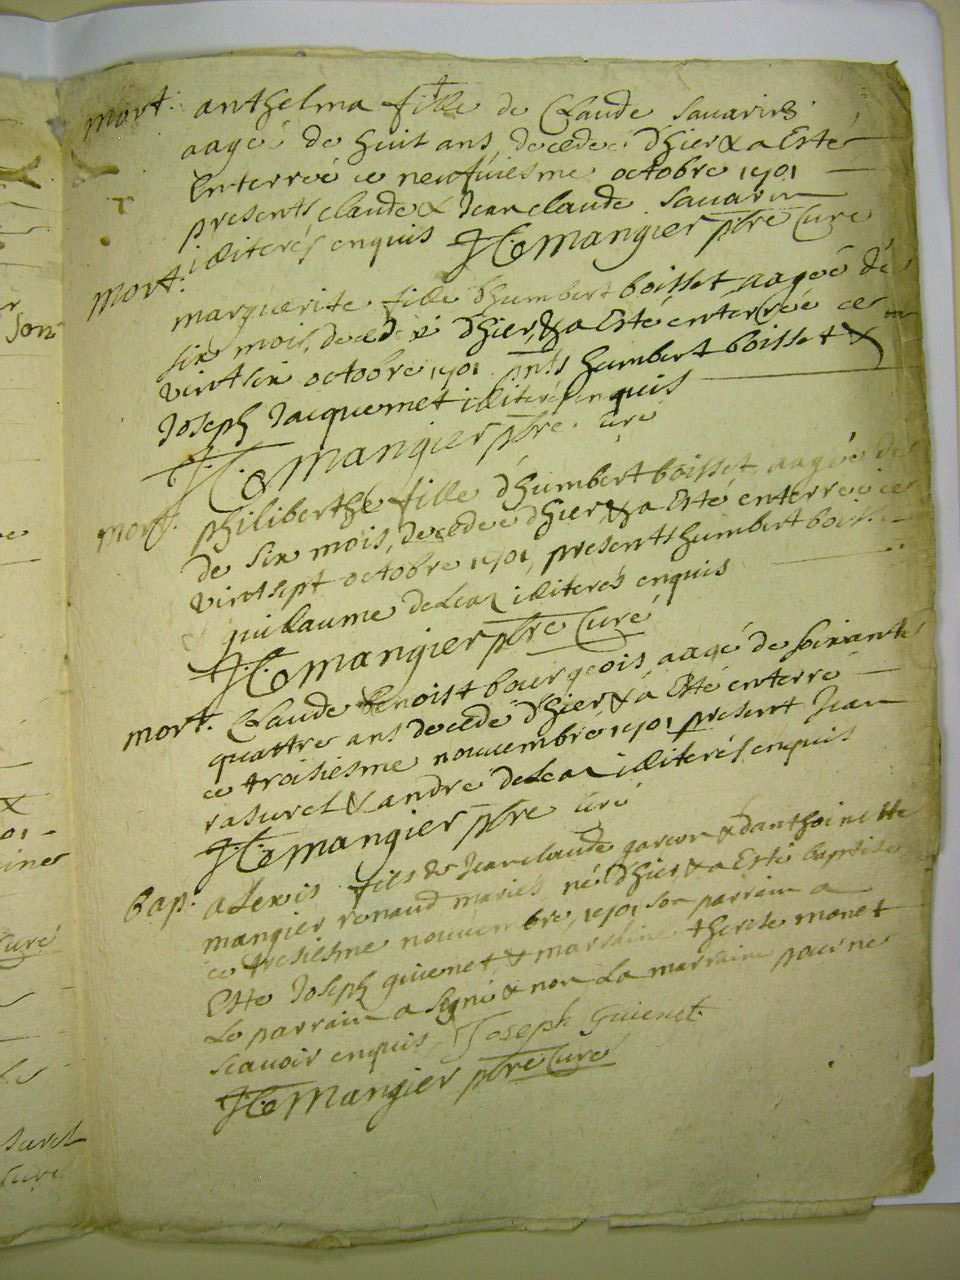 mort. anthelma fille de Claude Savarin
aagée de huit ans, decedée d'hier & a Esté
Enterrée ce neufuiesme octobre 1701
presents claude & Jean claude savarin
illiterés enquis J C Mangier pbre Curé
mort. marguerite fille d'humbert boisset aagée de
six mois, decedée d'hier & a Esté enterrée ce
vint six octobre 1701 pnts humbert boisset &
Joseph Jacquemet illiterés enquis
J C Mangier pbre curé
mort. philiberthe fille d'humbert boisset, aagée de
de six mois, decedée d'hier, & a Esté enterrée ce
vint sept octobre 1701, presents humbert boisset
guillaume delean illiterés enquis
J C Mangier pbre Curé
mort. Claude benoist bourgeois aagé de soixante
quattre ans decedé d'hier & a Esté enterré
ce troisiesme nouuembre 1701 present Jean
rasurel & andré delean illiterés enquis
J C Mangier pbre curé
Bap. alexis fils de Jean claude garçon & d'anthoinette
mangier renaud mariés né d'hier & a Esté baptisé
ce tresiesme nouuembre, 1701 son parrain a
Esté Joseph guienet, & marraine therese monet
Le parrain a signé & non La marraine pour ne
scauoir enquis, Joseph Guienet.
J C Mangier pbre Curé
son
Curé